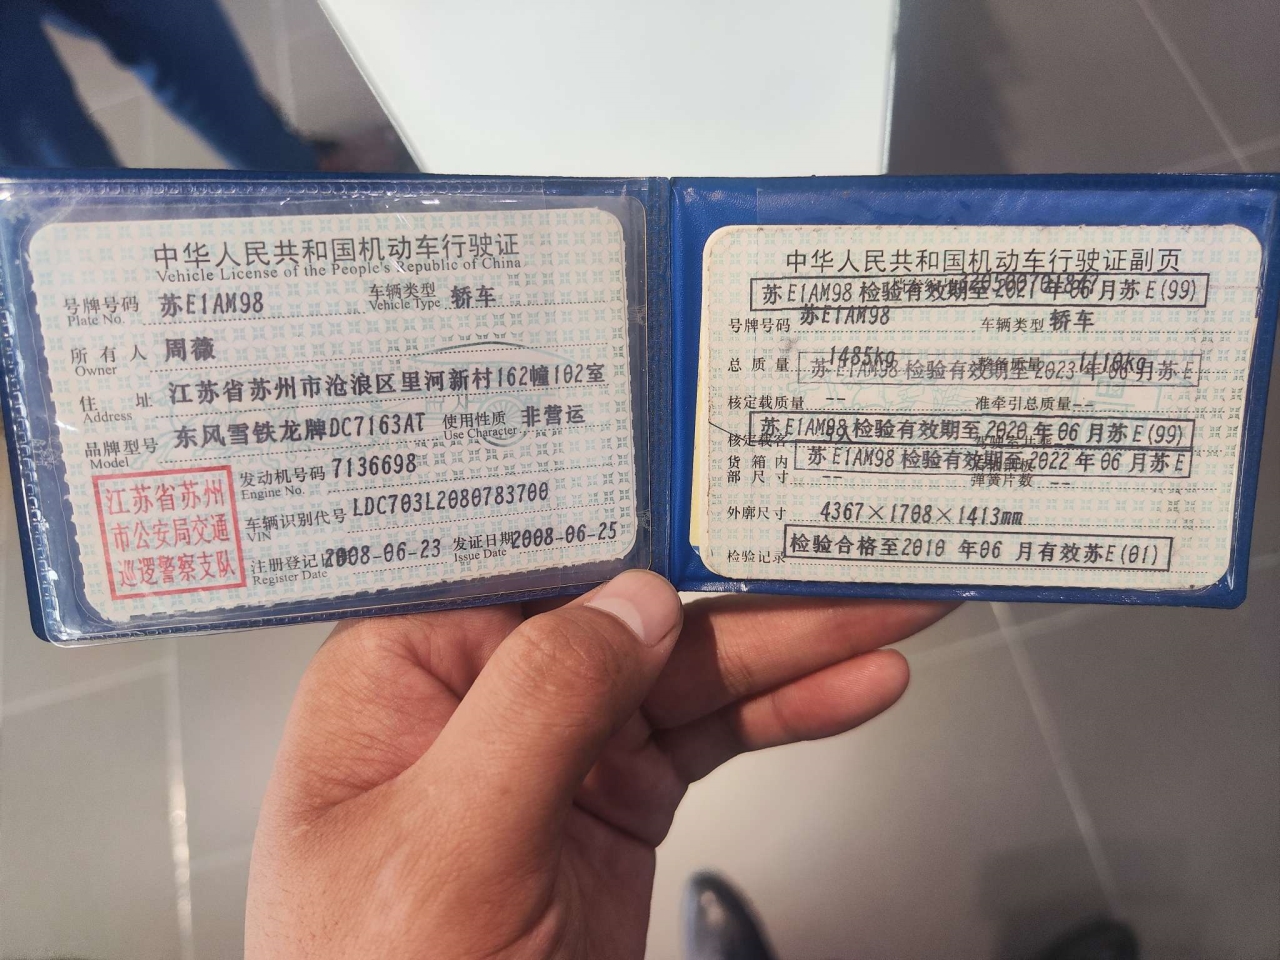 中华人民共和国机动车行驶证
Vehicle License of the People's Republic of China
号牌号码 苏E1AM98 车辆类型 轿车
Plate No. Vehicle Type
所有人 周薇
Owner
住址 江苏省苏州市沧浪区里河新村162幢102室
Address
品牌型号 东风雪铁龙牌DC7163AT 使用性质 非营运
Model Use Character
江苏省苏州
市公安局交通
巡逻警察支队
发动机号码 7136698
Engine No.
车辆识别代号 LDC703L2080783700
VIN
注册登记日 2008-06-23 发证日期 2008-06-25
Register Date Issue Date
中华人民共和国机动车行驶证副页
苏E1AM98 检验有效期至2021年06月苏E(99)
号牌号码 苏E1AM98 车辆类型 轿车
总质量 1485kg 整备质量 1110kg
苏E1AM98 检验有效期至2023年06月苏E
核定载质量 -- 准牵引总质量 --
苏E1AM98 检验有效期至2020年06月苏E(99)
核定载客
苏E1AM98 检验有效期至2022年06月苏E
货箱内部尺寸 -- 弹簧片数 --
外廓尺寸 4367×1708×1413mm
检验记录 检验合格至2010年06月有效苏E(01)